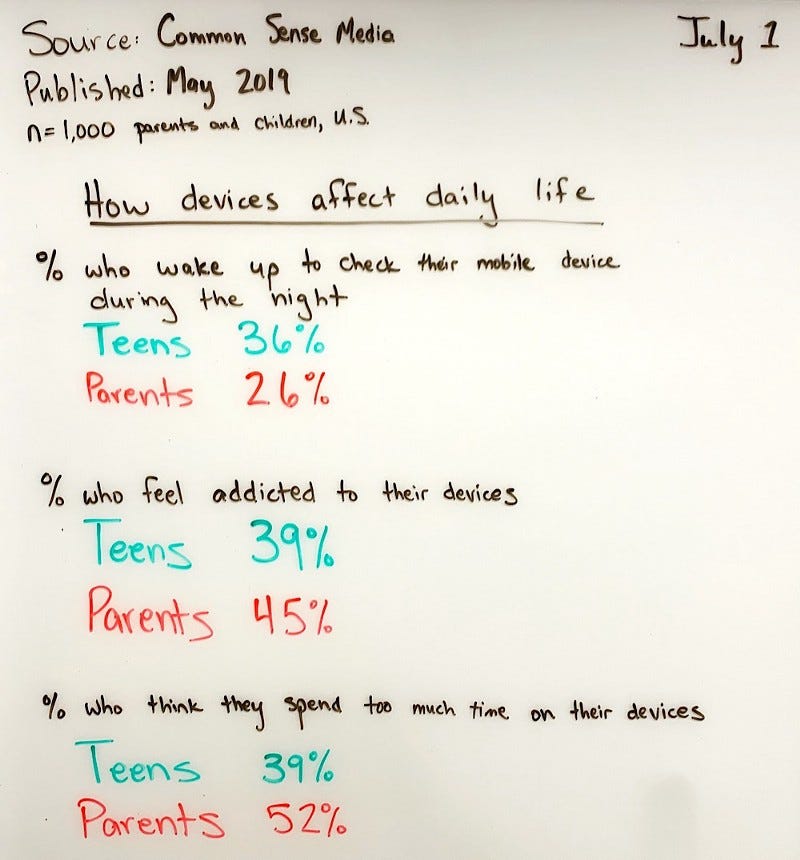 Source: Common Sense Media
July 1
Published: May 2019
n=1,000 parents and children, U.S.
How devices affect daily life
% who wake up to check their mobile device
during the night
Teens 36%
Parents 26%
% who feel addicted to their devices
Teens 39%
Parents 45%
% who think they spend too much time on their devices
Teens 39%
Parents 52%